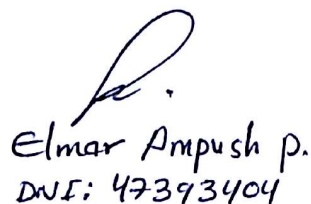 Elmar Ampush p.
DNI: 47393404